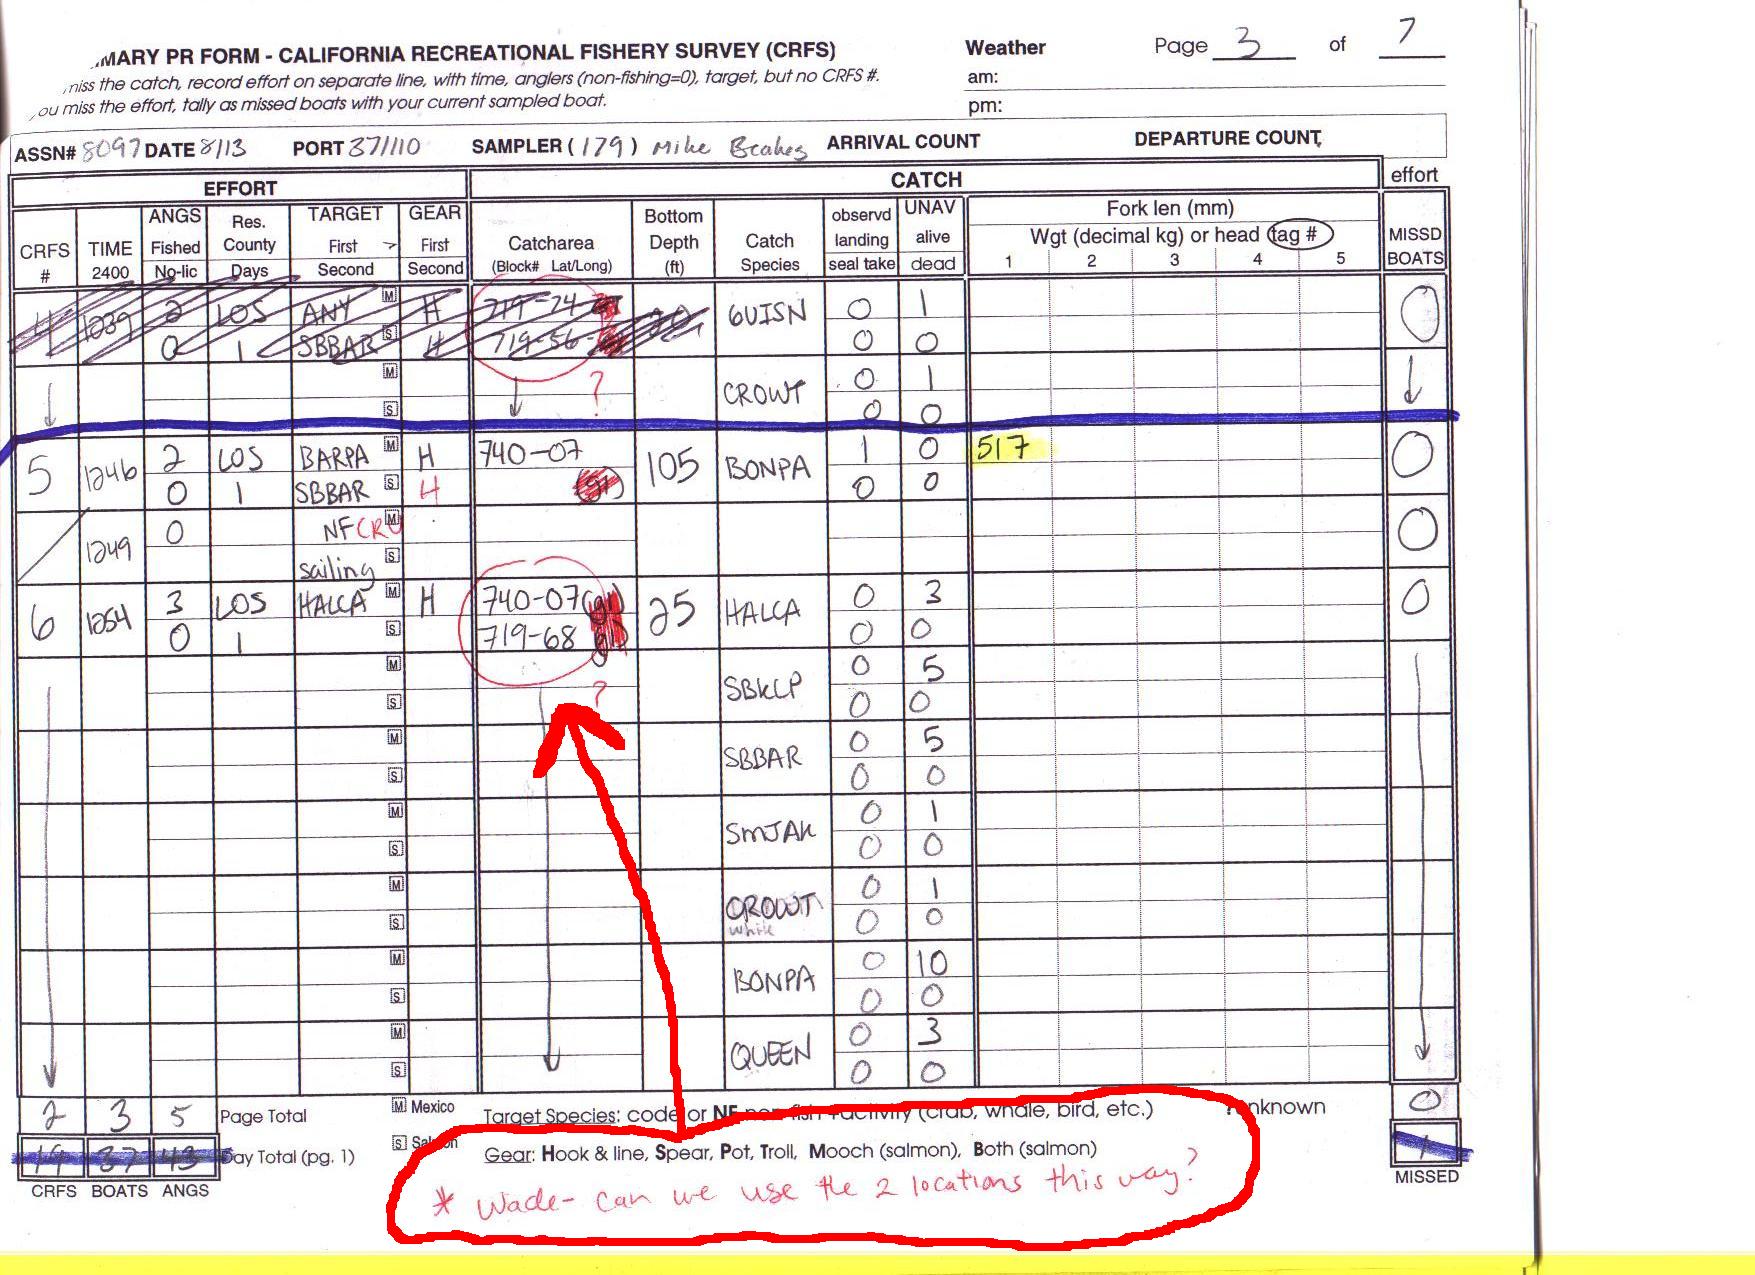 MARY PR FORM - CALIFORNIA RECREATIONAL FISHERY SURVEY (CRFS)
Weather Page 3 of 7
miss the catch, record effort on separate line, with time, anglers (non-fishing=0), target, but no CRFS #.
am:
ou miss the effort, tally as missed boats with your current sampled boat.
pm:
ASSN# 8097 DATE 8/13 PORT 371110 SAMPLER (179) Mike ARRIVAL COUNT DEPARTURE COUNT
EFFORT CATCH effort
CRFS # TIME 2400 ANGS Fished No-lic Res. County Days TARGET First Second GEAR First Second Catcharea (Block# Lat/Long) Bottom Depth (ft) Catch Species observd landing seal take UNAV alive dead Fork len (mm) MISSD BOATS
Wgt (decimal kg) or head tag #
1 2 3 4 5
4 1239 2 LOS ANY M H 719-74 20 GUISN 0 1 0
0 1 SBBAR S H 719-56 0 0
M CROWT 0 1
S ? 0 0
5 1246 2 LOS BARPA M H 740-07 105 BONPA 1 0 517 0
0 1 SBBAR S H (gr) 0 0
1249 0 NF CRU M 0
sailing S
6 1254 3 LOS HALCA M H 740-07 (gr) 25 HALCA 0 3 0
0 1 S 719-68 0 0
M SBKLP 0 5
S ? 0 0
M SBBAR 0 5
S 0 0
M SMJAK 0 1
S 0 0
M CROWT 0 1
S white 0 0
M BONPA 0 10
S 0 0
M QUEEN 0 3
S 0 0
2 3 5 Page Total M Mexico Target Species: code or NF non-fish +activity (crab, whale, bird, etc.) ? unknown 0
19 37 43 Day Total (pg. 1) S Salmon Gear: Hook & line, Spear, Pot, Troll, Mooch (salmon), Both (salmon) 1
CRFS BOATS ANGS MISSED
* Wade - can we use the 2 locations this way?